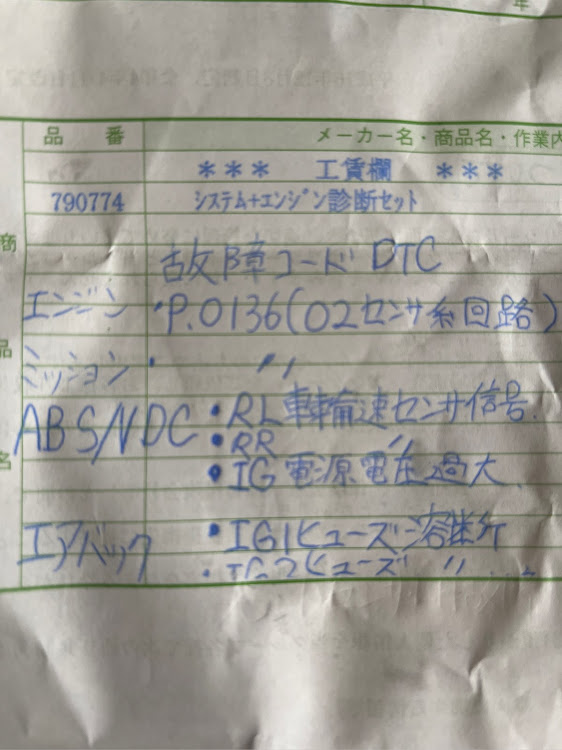 年
品 番 メーカー名・商品名・作業内
*** 工賃欄 ***
790774 システム+エンジン診断セット
商
故障コード DTC
エンジン ・P.0136(O2センサ系回路)
品
ミッション ・ 〃
ABS/VDC ・RL車輪速センサ信号
・RR 〃
名
・IG電源電圧過大
エアバック ・IG1ヒューズ溶断
・IG2ヒューズ 〃